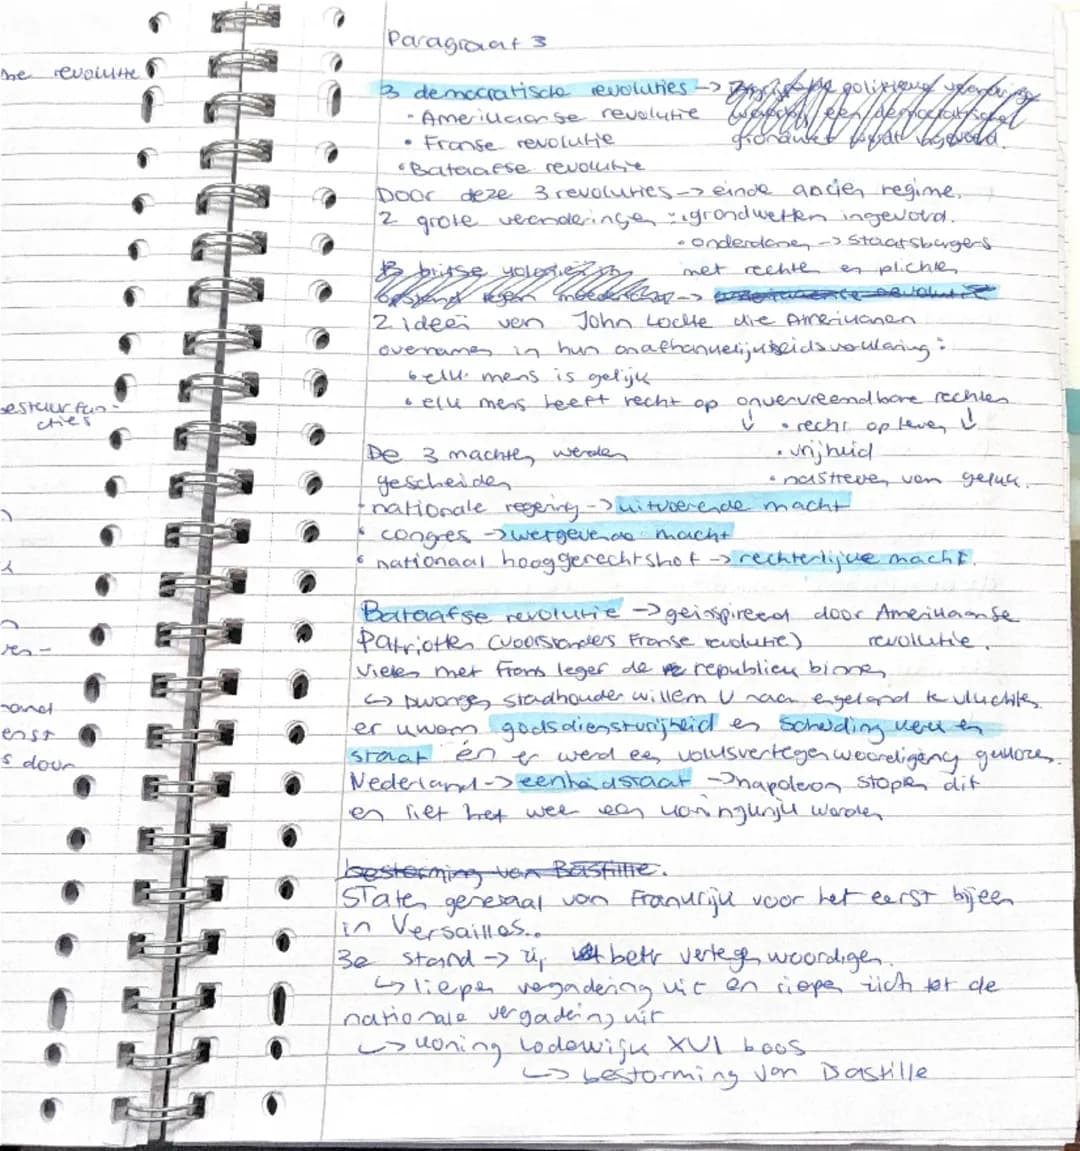 Paragraaf 3
the revolutie
3 democratische revoluties ->
• Amerikaanse revolutie
• Franse revolutie
• Bataafse revolutie
Door deze 3 revoluties -> einde ancien regime.
2 grote veranderingen : • grondwetten ingevoerd.
• onderdanen -> staatsburgers
met rechten en plichten
2 ideeën van John Locke die Amerikanen
overnamen in hun onafhankelijkheidsverklaring :
• elk mens is gelijk
• elk mens heeft recht op onvervreemdbare rechten
↓ • recht op leven ↓
• vrijheid
• nastreven van geluk.
De 3 machten werden
gescheiden
• nationale regering -> uitvoerende macht
• congres -> wetgevende macht
• nationaal hooggerechtshof -> rechterlijke macht.
Bataafse revolutie -> geïnspireerd door Amerikaanse
revolutie.
Patriotten (voorstanders Franse revolutie)
vielen met Frans leger de republiek binnen
↳ dwongen stadhouder willem V naar engeland te vluchten.
er kwam godsdienstvrijheid en scheiding kerk en
staat én er werd een volksvertegenwoordiging gekozen.
Nederland -> eenheidstaat -> napoleon stopte dit
en liet het weer een koningkrijk worden
bestorming van Bastille.
Staten generaal van Frankrijk voor het eerst bijeen
in Versailles..
3e stand -> zij betr vertegenwoordigen.
↳ liepen vergadering uit en riepen zich tot de
nationale vergadering uit
↳ koning Lodewijk XVI boos
↳ bestorming van Bastille
bestuur fun-
cties
s door